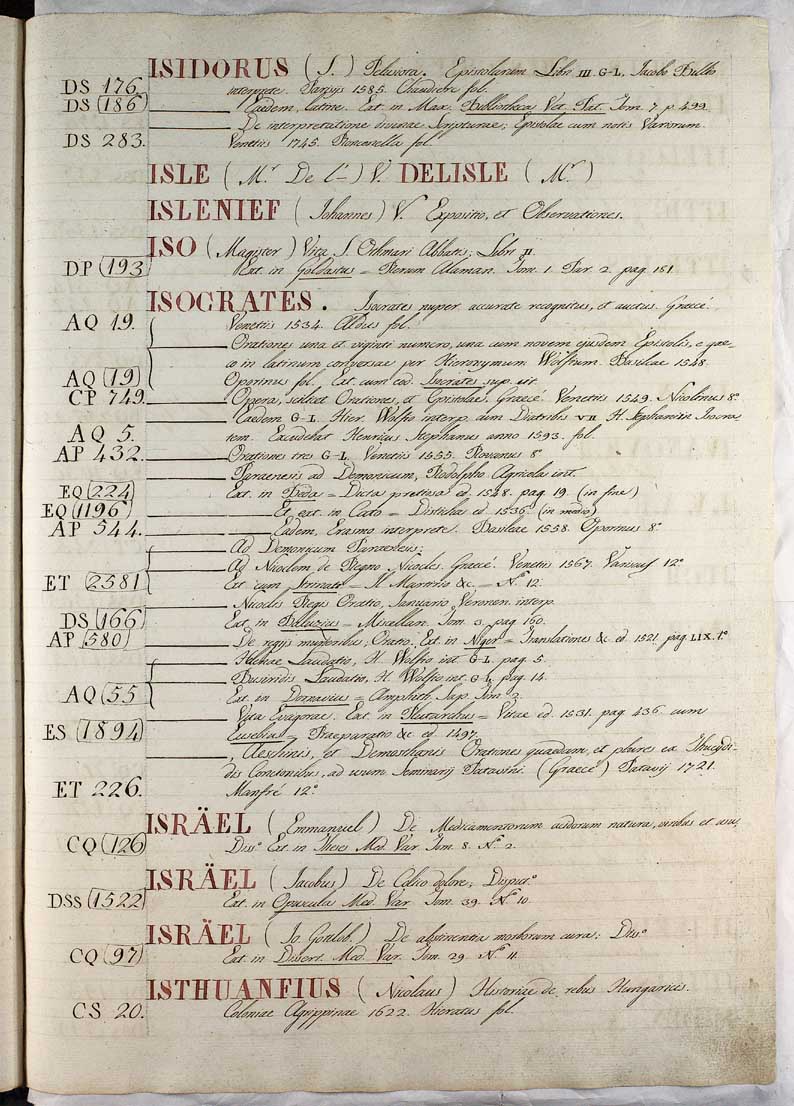 ISIDORUS (S.) Pelusiota. Epistolarum Libri III G-L. Jacobo Billio
DS 176. interprete. Parisijs 1585. Chaudiere fol.
DS (186) ——— Eaedem, latine. Ext. in Max. Bibliotheca Vet. Pat. Tom. 7. p. 499.
——— De interpretatione divinae Scripturae; Epistolae cum notis Variorum.
DS 283. Venetiis 1745. fol.
ISLE (Mr. De l'—) V. DELISLE (Mr.)
ISLENIEF (Johannes) V. Expositio, et Observationes.
ISO (Magister) Vita S. Othmari Abbatis; Libri II.
DP (193) Ext. in Goldastus = Rerum Alaman. Tom. 1. Par. 2. pag. 181.
ISOCRATES. Isocrates nuper accurate recognitus, et auctus. Graecé.
AQ 19. Venetiis 1534. Aldus fol.
——— Orationes una et viginti numero, una cum novem ejusdem Epistolis, e grae-
co in latinum conversae per Hieronymum Wolfium. Basileae 1548.
AQ (19) Oporinus fol. Ext. cum eod. Isocrates sup. cit.
CP 749. ——— Opera, scilicet Orationes, et Epistolae, Graecé. Venetiis 1549. Nicolinus 8°
——— Eaedem G-L. Hier. Wolfio interp. cum Diatribis VII H. Stephani in Isocra-
AQ 5. tem. Excudebat Henricus Stephanus anno 1593. fol.
AP 432. ——— Orationes tres G-L. Venetiis 1555. 8°
——— Paraenesis ad Demonicum, Rodolpho Agricola int.
EQ (224) Ext. in Beda = Dicta prettiosa ed. 1548. pag. 19. (in fine)
EQ (1196) ——— Et ext. in Cato = Disticha ed. 1536. (in medio)
AP 544. ——— Eadem, Erasmo interprete. Basileae 1558. Oporinus 8°
——— Ad Demonicum Paraenesis;
——— Ad Nicoclem de Regno Nicocles. Graecé. Venetiis 1567. 12°
ET (2581) Ext. cum = Il &c. = N.° 12.
——— Nicoclis Regis Oratio, Januario Veronen. interp.
DS (166) Ext. in Baluzius = Miscellan. Tom. 3. pag. 160.
AP (580) ——— De regijs muneribus Oratio. Ext. in Niger = Translationes &c. ed. 1521. pag. LIX. t.°
——— Helenae Laudatio, H. Wolfio int. G-L. pag. 5.
——— Busiridis Laudatio, H. Wolfio int. G-L. pag. 14.
AQ (55) Ext. in Dornavius = Amphith. Sap. Tom. 2.
——— Vita Evagorae. Ext. in Plutarchus = Vitae ed. 1531. pag. 436. cum
ES (1894) Eusebius = Praeparatio &c. ed. 1497.
———, Aeschinis, et Demosthenis Orationes quaedam, et plures ex Thucydi-
dis Concionibus, ad usum Seminarij Patavini. (Graecé) Patavij 1721.
ET 226. Manfré 12°
ISRÄEL (Emmanuel) De Medicamentorum acidorum natura, viribus et usu;
CQ (126) Diss.° Ext. in Theses Med. Var. Tom. 8. N.° 2.
ISRÄEL (Jacobus) De Colico dolore; Disput.°
DSS (1522) Ext. in Opuscula Med. Var. Tom. 39. N.° 10.
ISRÄEL (Jo. Gottlob.) De abstinentia morborum cura; Diss.°
CQ (97) Ext. in Dissert. Med. Var. Tom. 29. N.° 11.
ISTHUANFIUS (Nicolaus) Historiae de rebus Hungaricis.
CS 20. Coloniae Agrippinae 1622. Hieratus fol.